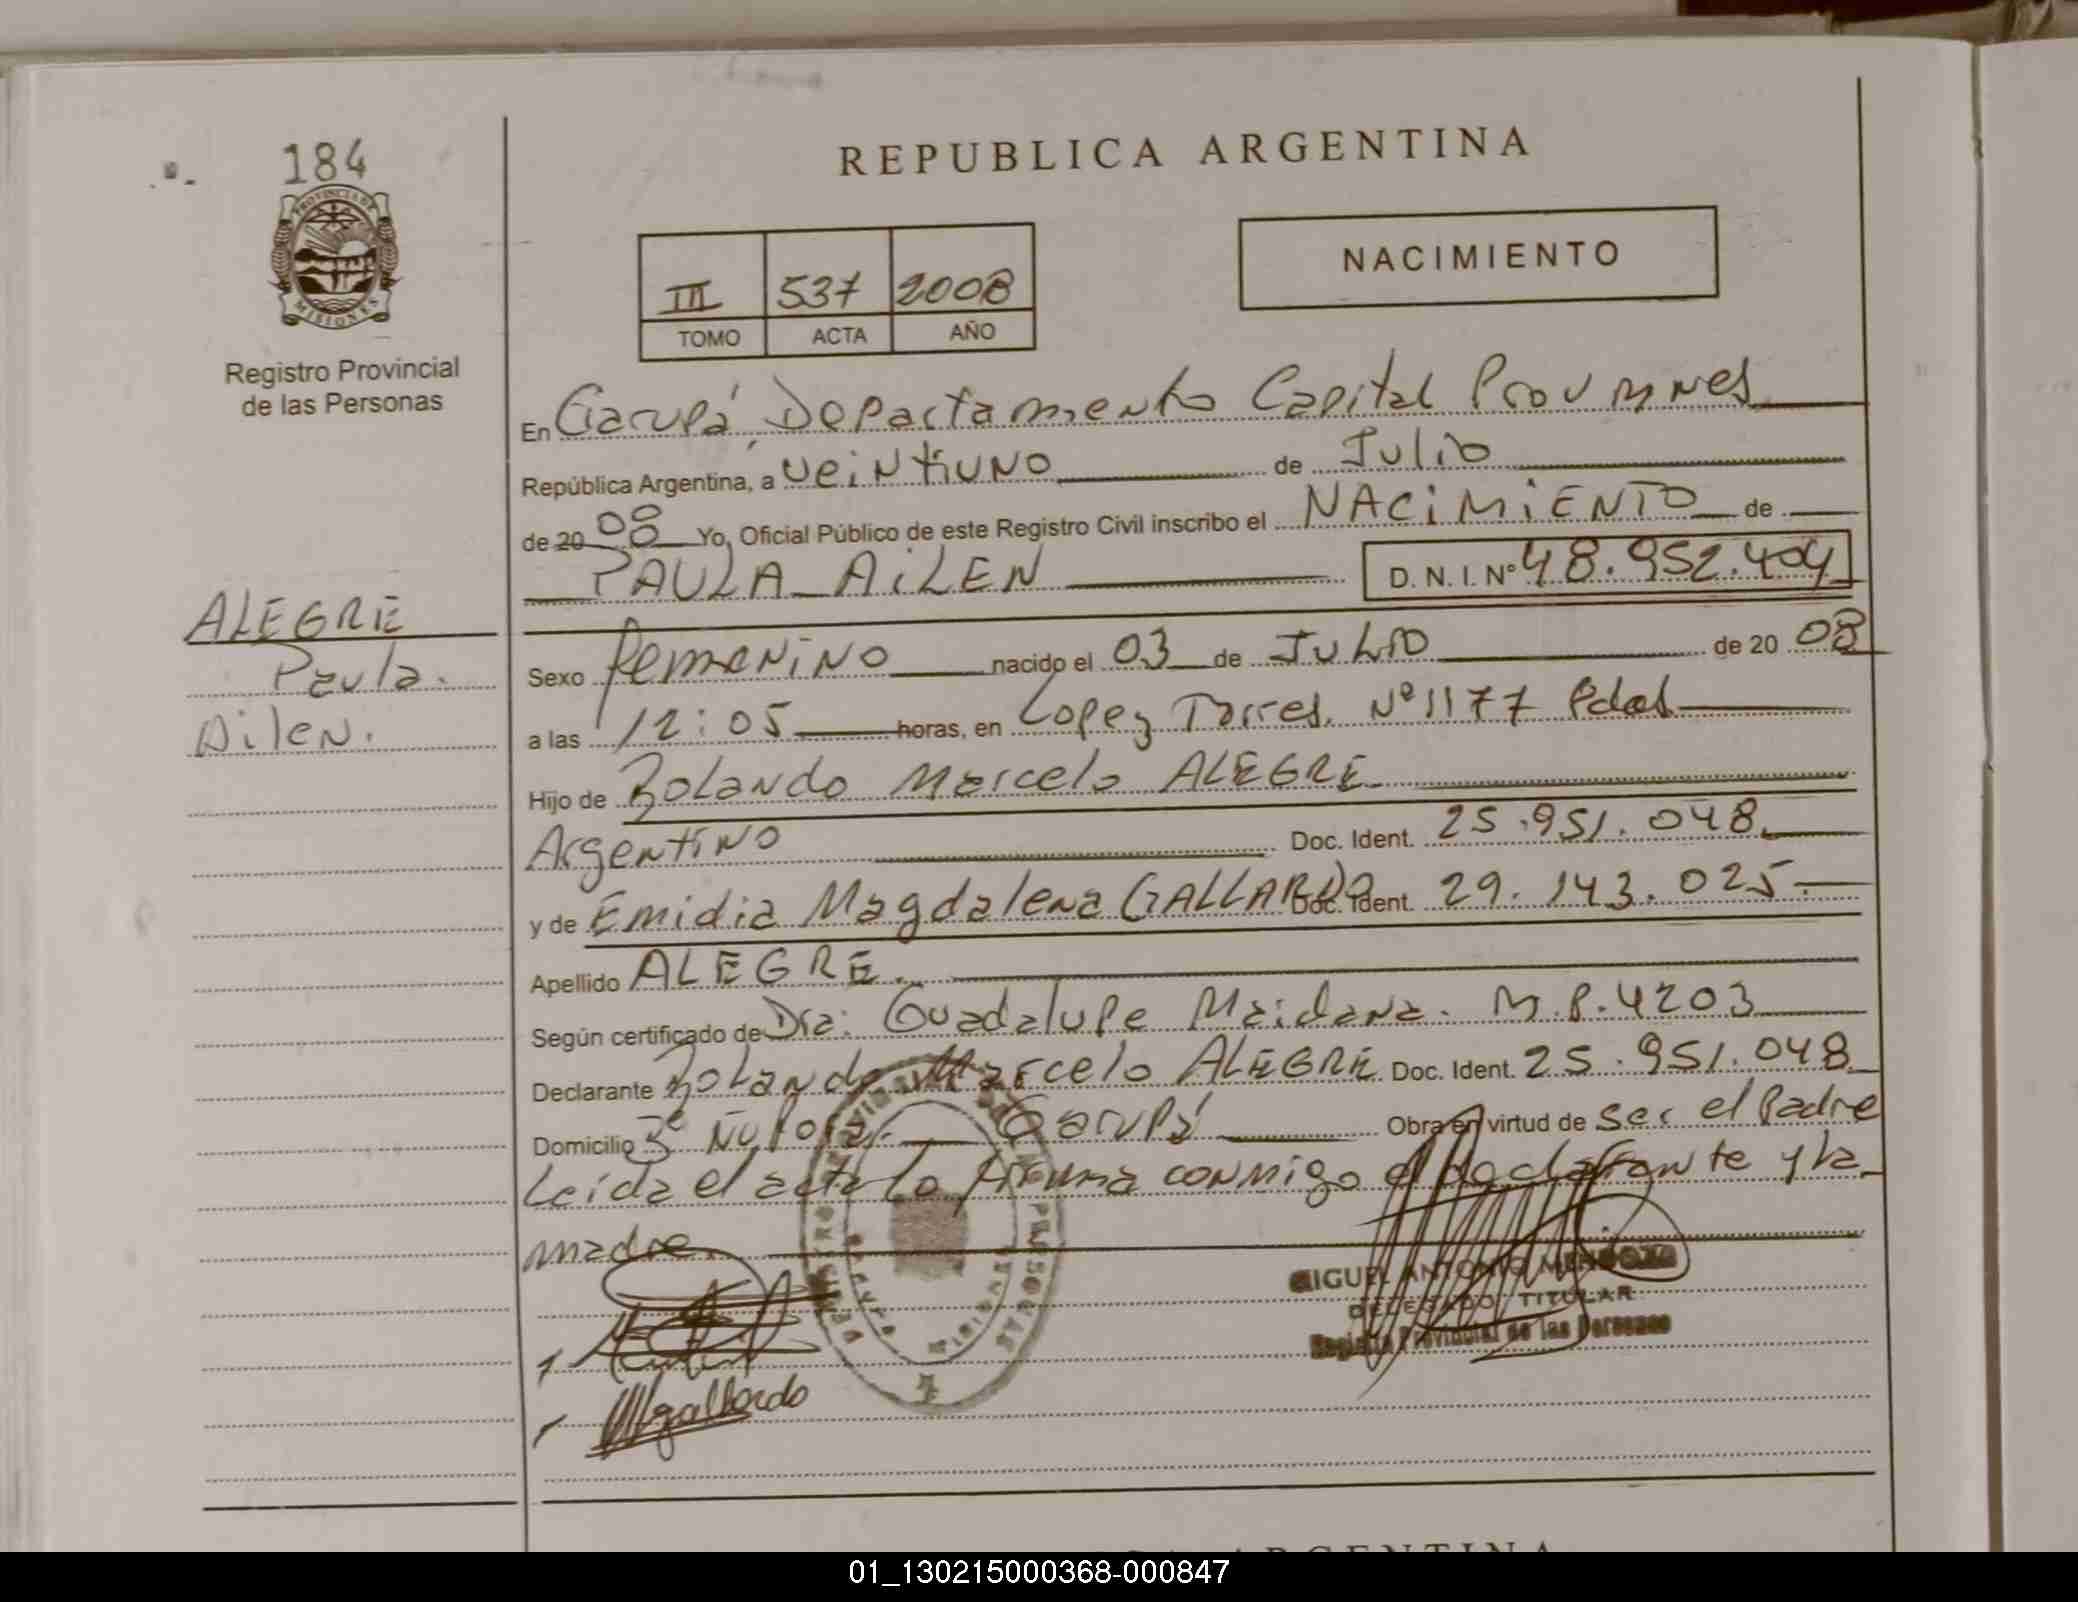 184
PROVINCIA DE
MISIONES
Registro Provincial
de las Personas
ALEGRE
Paula.
Ailen.
REPUBLICA ARGENTINA
III 537 2008
TOMO ACTA AÑO
NACIMIENTO
En Garupá, Departamento Capital Prov Mnes
República Argentina, a veintiuno de Julio
de 20 08 Yo, Oficial Público de este Registro Civil inscribo el NACIMIENTO de
PAULA AILEN D. N. I. Nº 48.952.404
Sexo Femenino nacido el 03 de Julio de 20 08
a las 12:05 horas, en Lopez Torres. Nº 1177 Pdas
Hijo de Rolando Marcelo ALEGRE
Argentino Doc. Ident. 25.951.048.
y de Emidia Magdalena GALLARDO Doc. Ident. 29.143.025.
Apellido ALEGRE.
Según certificado de Dra: Guadalupe Maidana. M.P. 4203
Declarante Rolando Marcelo ALEGRE Doc. Ident. 25.951.048
Domicilio Garupá Obra en virtud de Ser el Padre
Leida el acta la firma conmigo el declarante y la
madre.
MIGUEL ANTONIO MENDOZA
DELEGADO TITULAR
Registro Provincial de las Personas
Mgallardo
ARGENTINA
01_130215000368-000847